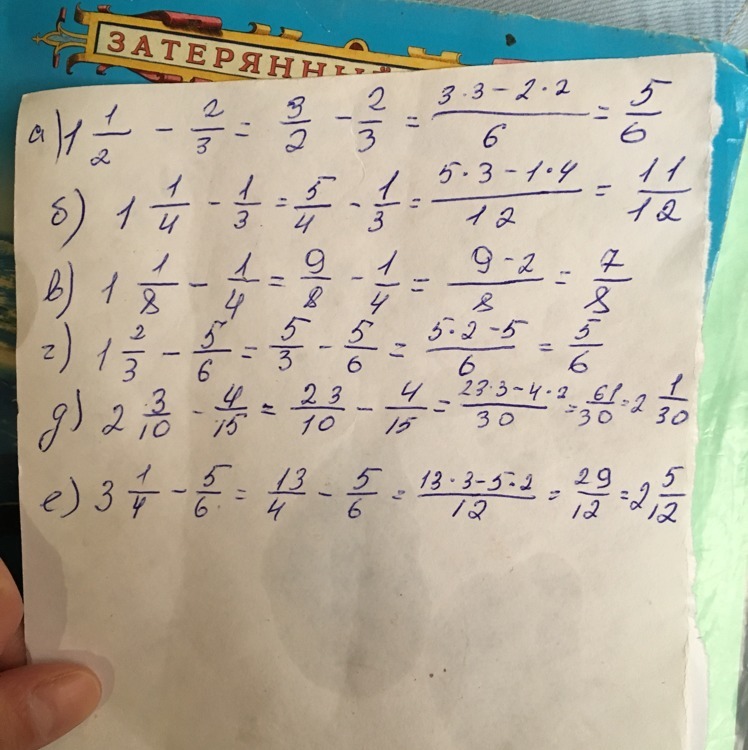 ЗАТЕРЯННЫ
а) 1 1/2 - 2/3 = 3/2 - 2/3 = (3·3-2·2)/6 = 5/6
б) 1 1/4 - 1/3 = 5/4 - 1/3 = (5·3-1·4)/12 = 11/12
в) 1 1/8 - 1/4 = 9/8 - 1/4 = (9-2)/8 = 7/8
г) 1 2/3 - 5/6 = 5/3 - 5/6 = (5·2-5)/6 = 5/6
д) 2 3/10 - 4/15 = 23/10 - 4/15 = (23·3-4·2)/30 = 61/30 = 2 1/30
е) 3 1/4 - 5/6 = 13/4 - 5/6 = (13·3-5·2)/12 = 29/12 = 2 5/12